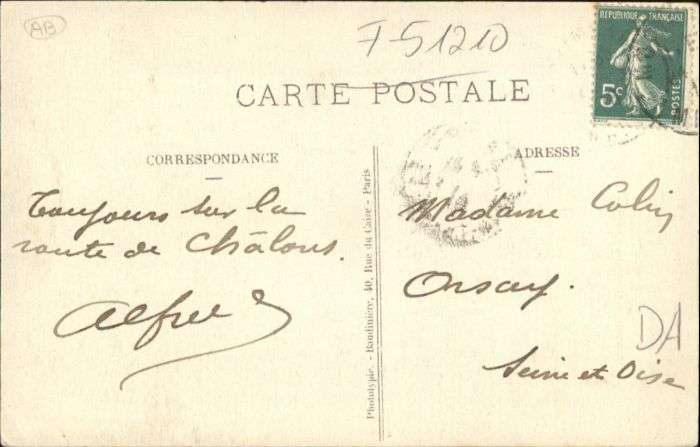 AB
F 51210
RÉPUBLIQUE FRANÇAISE
5c
POSTES
CARTE POSTALE
CORRESPONDANCE
Toujours sur la
route de Châlons.
Alfred
Phototypie. - Baudinière, 40, Rue du Caire - Paris
ADRESSE
Madame Colin
Orsay.
Seine et Oise
DA